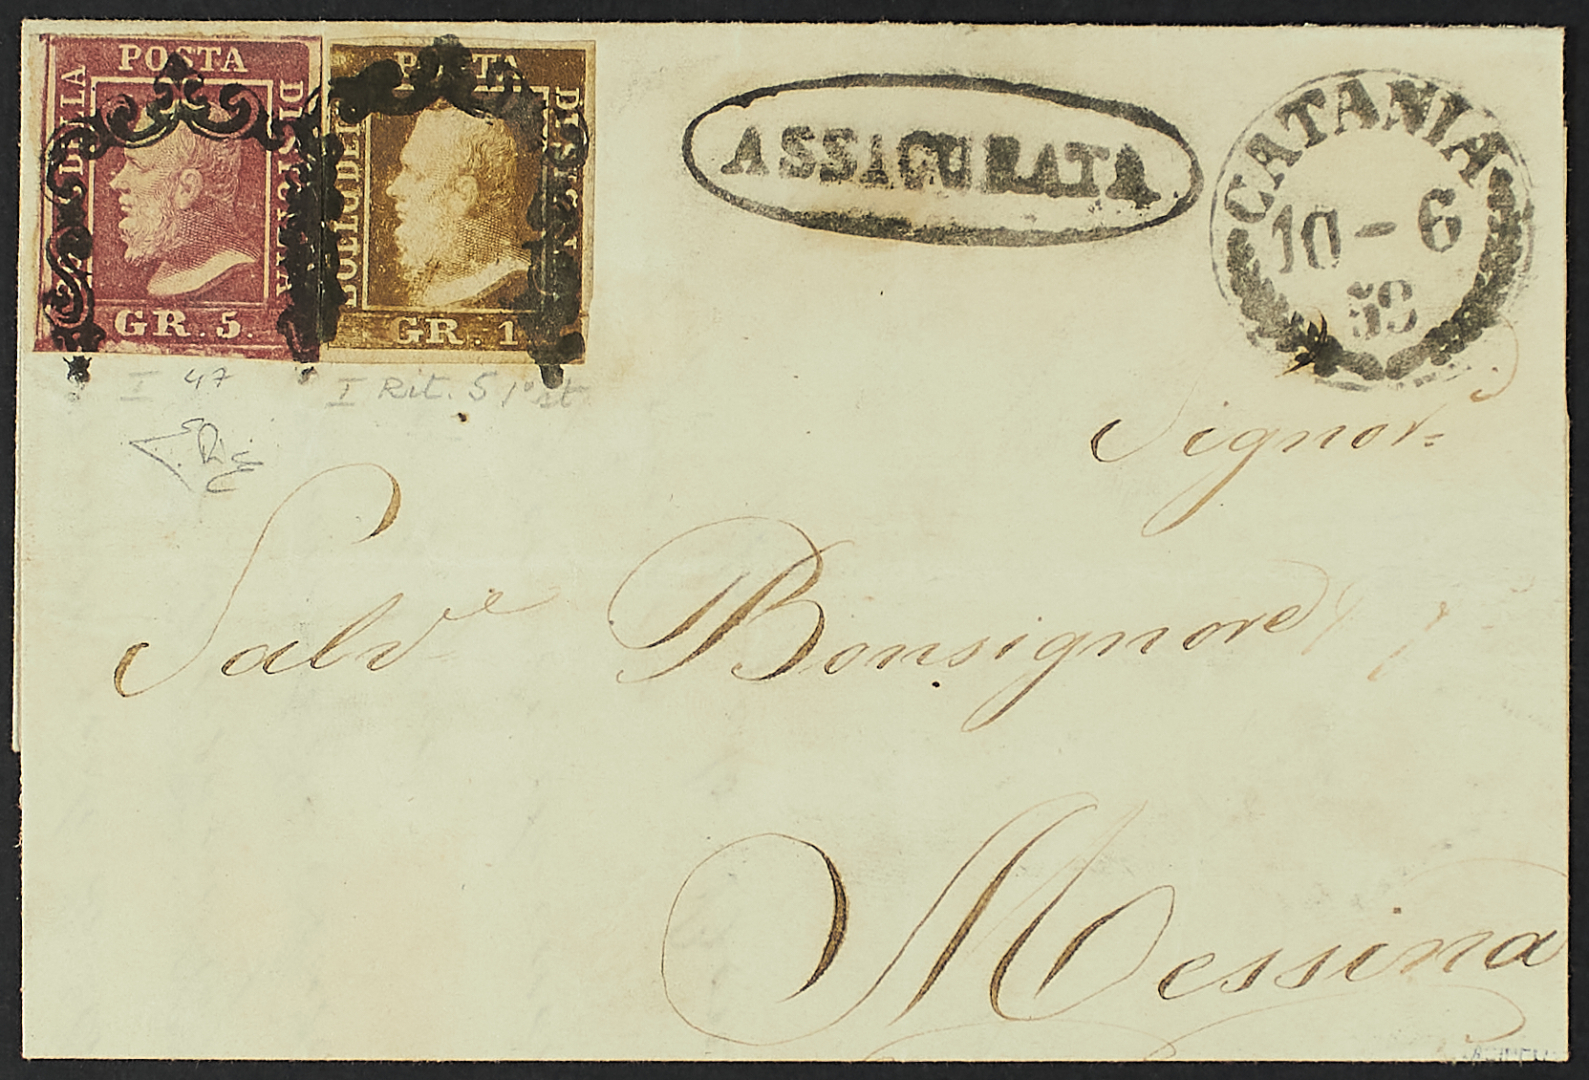 BOLLO DELLA POSTA DI SICILIA
GR. 5.
BOLLO DELLA POSTA DI SICILIA
GR. 1
ASSICURATA
CATANIA
10-6
59
I 47
I Rit. 5 1° st
Signor
Salv.e Bonsignore
Messina